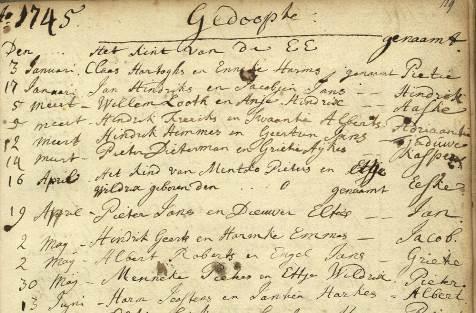 Ao 1745. Gedoopte: 119
Den Het Kint van de EE genaamt.
3 Januari, Claas Hartoghs en Enneke Harms, genaamt Pietie
17 Januari Jan Hindriks en Jacobjen Jans — Hindrik
5 meert - Willem Looth en Antje Hindrik — Aafke
9 meert - Hindrik Freerks en Swaantie Alberts — Adriaantie
12 meert Hindrik Himmes en Geertien Jans
14 meert Pieter Dieterman en Grietie Aijkes — Kasper
16 April Het Kind van Mentko Pieters en Etje
Wildrix geboren den genaamt Eeske
19 April - Pieter Jans en Dieuwer Elties — Jan
2 Maij - Hindrik Geerts en Harmke Emmes — Jacob.
2 Maij - Albert Roberts en Engel Jans — Grietie
30 Maij - Menneke Piekes en Ettje Wildrik. Pieter
13 Juni - Harm Jeosters en Janken Harkes - Albert